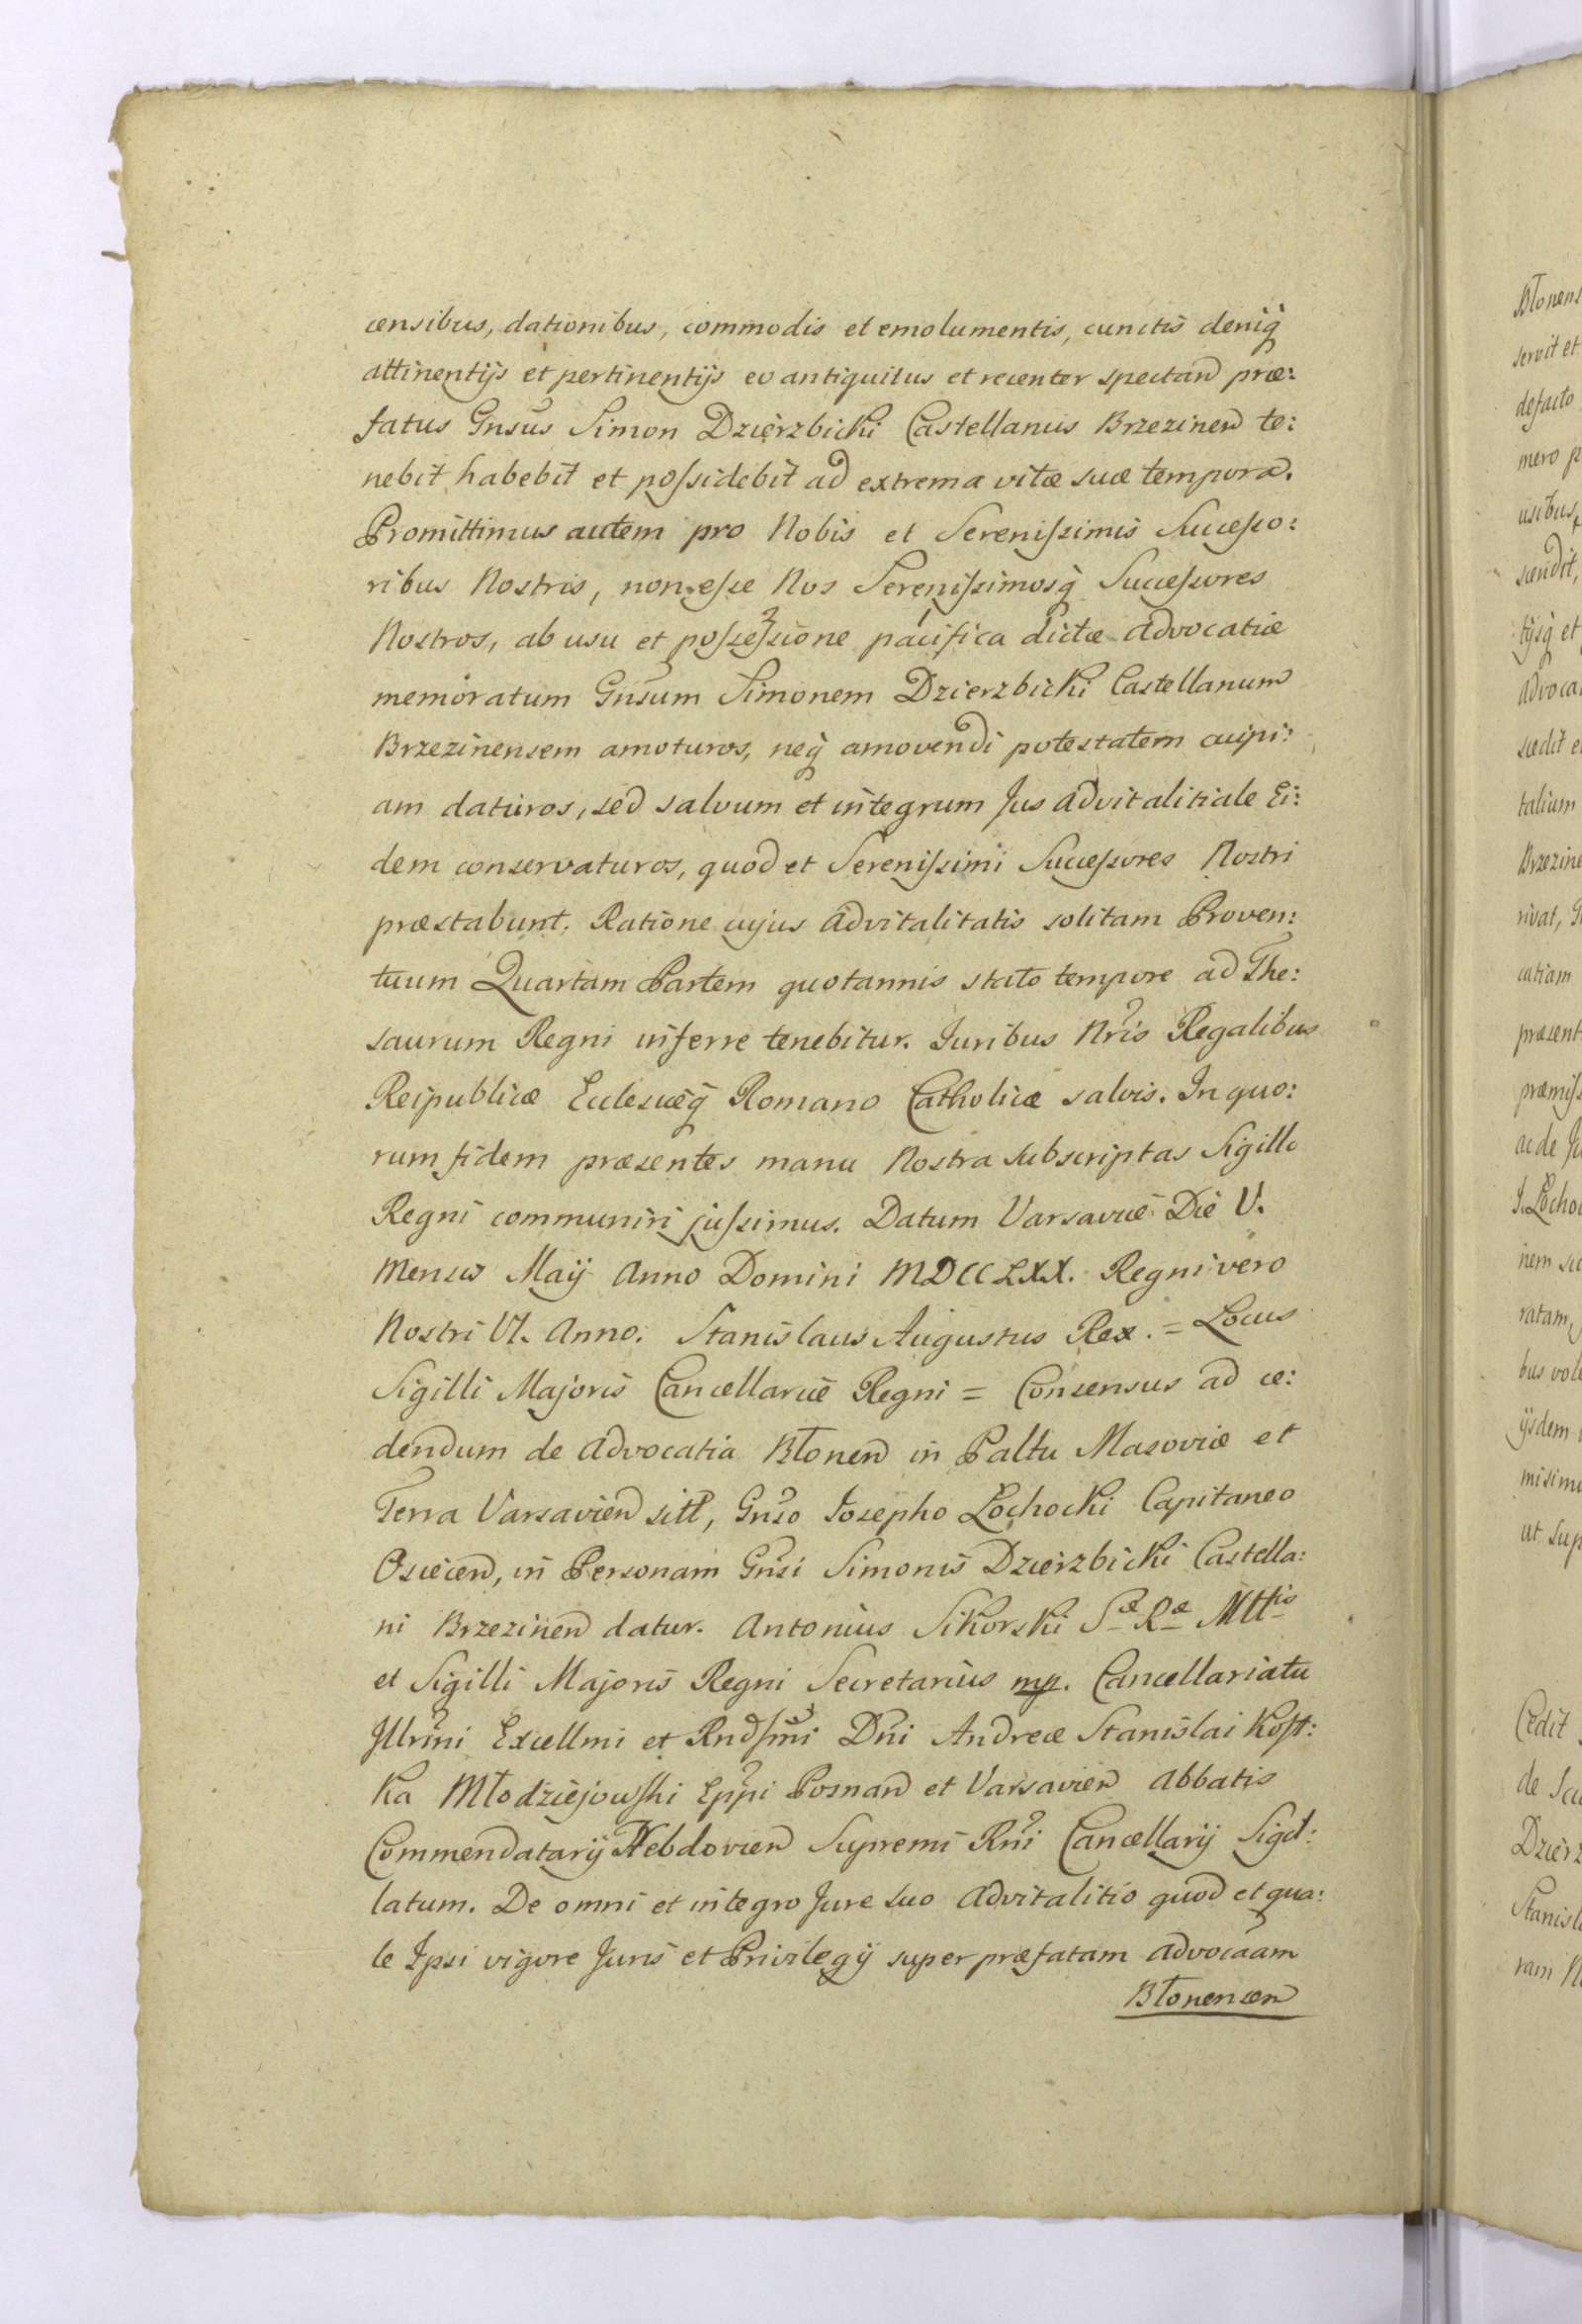 censibus, dationibus, commodis et emolumentis, cunctis deniq̃
attinentijs et pertinentijs eo antiquitus et recenter spectand præ:
fatus Gnsus Simon Dzierzbicki Castellanus Brzezinen te:
nebit habebit et poſsidebit ad extrema vitæ suæ tempora.
Promittimus autem pro Nobis et Sereniſsimis Succeſso:
ribus Nostris, non eſse Nos Sereniſsimosq̃ Succeſsores
Nostros, ab usu et poſseſsione pacifica dictæ Advocatiæ
memoratum Gnsum Simonem Dzierzbicki Castellanum
Brzezinensem amoturos, neq̃ amovendi potestatem cuipi:
am daturos, sed salvum et integrum Jus Advitalitiale Ei:
dem conservaturos, quod et Sereniſsimi Succeſsores Nostri
præstabunt. Ratione cujus Advitalitatis solitam Proven:
tuum Quartam Partem quotannis stato tempore ad The:
saurum Regni inferre tenebitur. Juribus Nris Regalibus
Reipublicæ Ecclesiæq̃ Romano Catholicæ salvis. In quo:
rum fidem præsentes manu Nostra subscriptas Sigillo
Regni communiri juſsimus. Datum Varsaviæ Die V.
Mensis Maij Anno Domini MDCCLXX. Regni vero
Nostri VI. Anno. Stanislaus Augustus Rex. = Locus
Sigilli Majoris Cancellariæ Regni = Consensus ad ce:
dendum de Advocatia Błonen in Paltu Masoviæ et
Terra Varsavien sitt, Gnso Josepho Łochocki Capitaneo
Osiecen, in Personam Gnsi Simonis Dzierzbicki Castella:
ni Brzezinen datur. Antonius Sikorski Sæ Ræ Mttis
et Sigilli Majoris Regni Secretarius mp. Cancellariatu
Jllrmi Excellmi et Rndſmi Dni Andreæ Stanislai Koſt:
ka Młodziejowſki Eppi Posnan et Varsavien Abbatis
Commendatarij Hebdovien Supremi Rni Cancellarij Sigil:
latum. De omni et integro Jure suo Advitalitio quod et qua:
le Ipsi vigore Juris et Privilegij super præfatam Advocãam
Błonencen